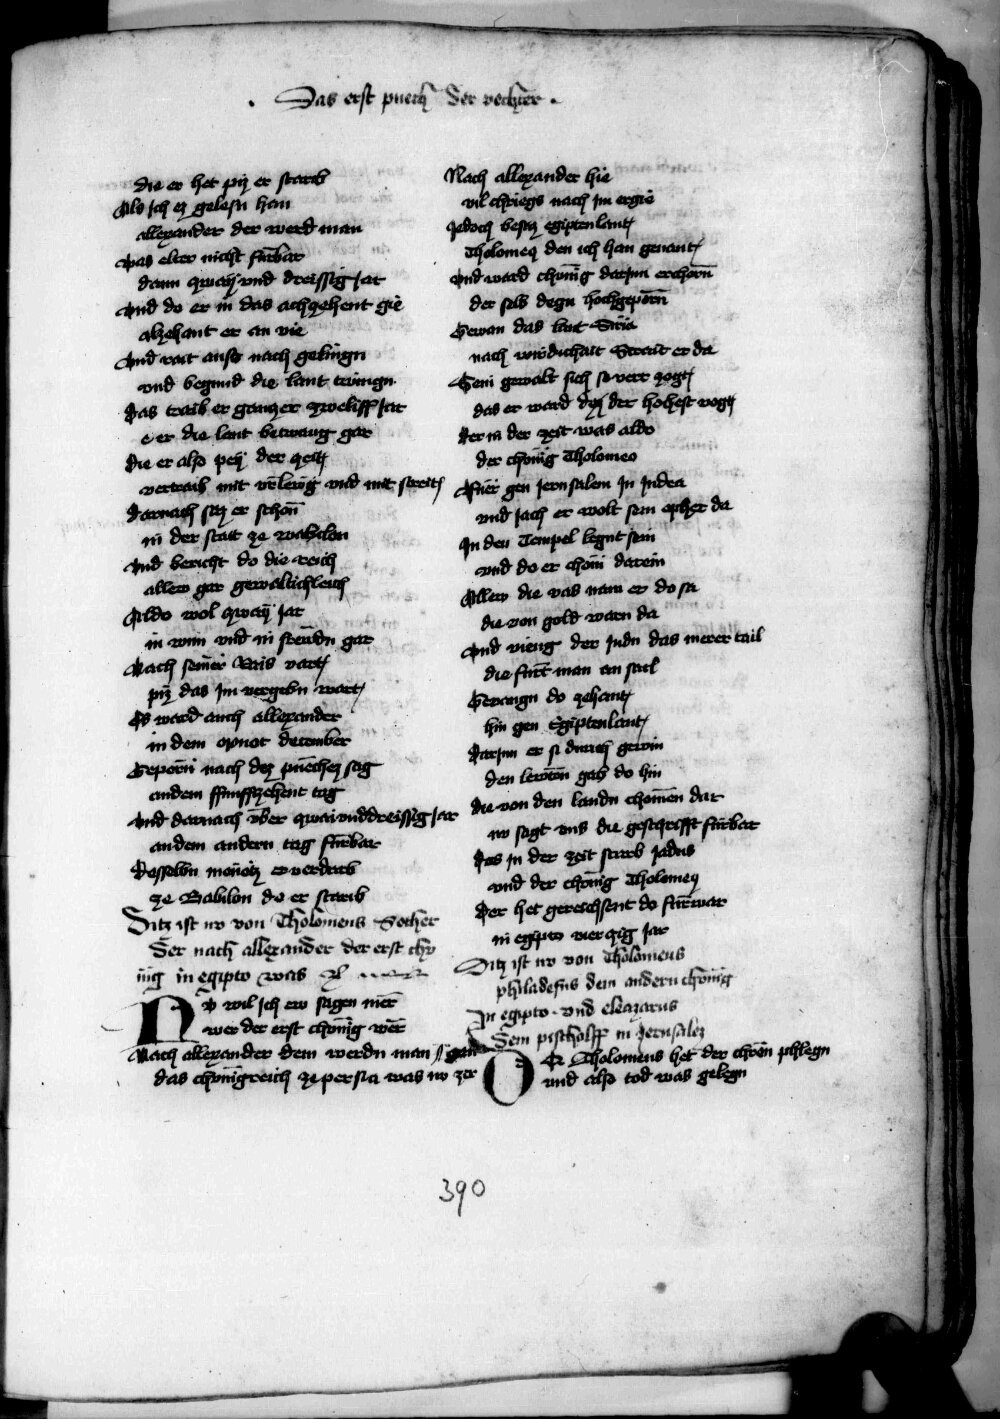 Das erst puech der vechter
die er het piz er starb
Als ich ez gelesn han
allexander der werd man
was elter nicht fürbar
dann zway vnd dreissig jar
vnd do er in das achzehent gie
alzehant er an vie
vnd rait auss nach gelingn
vnd begund die lant twingn
Das traib er ganzer zweliff jar
e er die lant betwang gar
die er also pey der zeit
vertraib mit vrleug vnd mit streit
Darnach saz er schon
in der stat ze wabilon
vnd bericht do die reich
allew gar gewaltichleich
Aldo wol zway jar
in wun vnd in freudn gar
Nach seiner Rais vart
piz das im vergebn wart
Es ward auch allexander
in dem monot december
Geporn nach dez puechez sag
andem funffzehent tag
vnd darnach vber zwai vnddreissig jar
andem andern tag fürbar
Desselbn monetz er verdarb
ze Babilon do er starib
Ditz ist nv von Tholomeus Sother
Der nach allexander der erst chv
nig in egipto was
Nv wil ich ew sagen mer
wer der erst chonig wer
Nach allexander dem werdn man
das chonigreich ze persia was nv zer
Nach allexander hie
vil chriegs nach im ergie
jedoch besaz egiptenlant
Tholomeus den ich han genant
vnd ward chonig darjnn erchorn
der selb degn hochgeporn
Gewan das lant Siria
nach wirdichait Strait er da
Sein gewalt sich so verr zogt
das er ward dez der hochest vogt
der in der zeit was aldo
der chonig Tholomeo
Fuer gen jerusalem in judea
vnd jach er wolt sein opher da
in den Tempel legnt sein
vnd do er chom darein
Allew die vas nam er do sa
die von gold warn da
vnd vieng der judn das merer tail
die furt man an sail
Gevangn do zehant
hin gen Egiptenlant
darjnn er si durch gewin
den lewten gab do hin
die von den landn chomen dar
nv sagt vns die geschrifft fürbar
das in der zeit starb jadus
vnd der chonig Tholomeus
der het gereichsent do fürwar
in egipto vierczig jar
Ditz ist nv von Tholomeus
philadefus dem andern chonig
in egipto vnd eleazarus
Dem pischolff in Jerusalez
Do Tholomeus het der chron phlegn
vnd also tod was gelegn
390